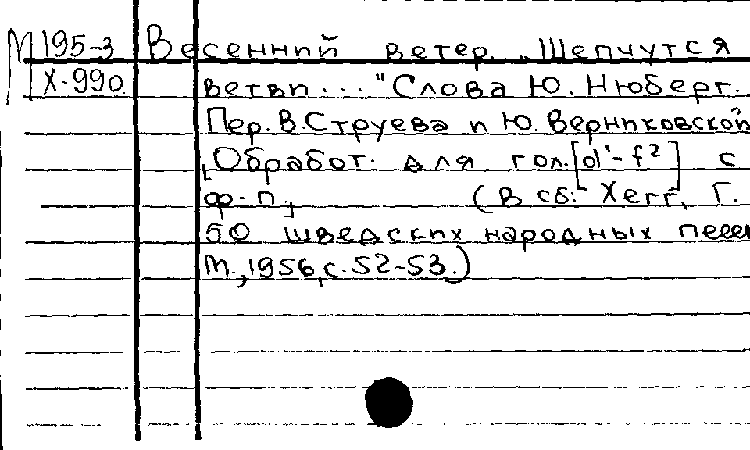 М 195-3 Весенний ветер. „Шепчутся
X-990 ветви..." Слова Ю. Нюберг.
Пер. В. Струева и Ю. Верниковской
[Обработ. для гол. [d'-f²] с
ф-п.] (В сб: Хегг, Г.
50 шведских народных песен
М., 1956, с. 52-53.)